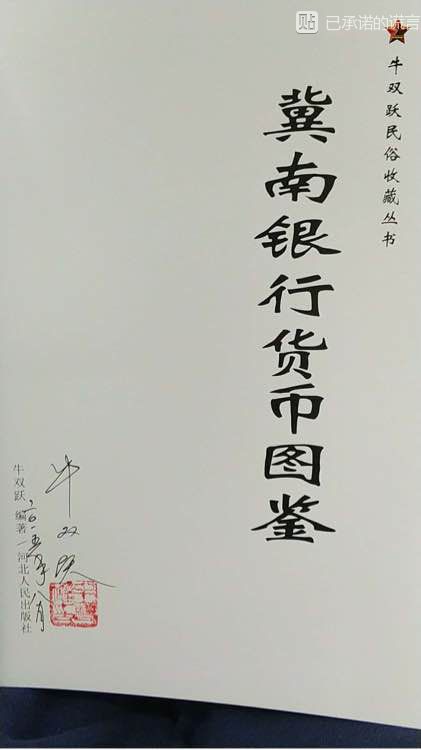 贴 已承诺的谎言
牛双跃民俗收藏丛书
冀南银行货币图鉴
牛双跃
二〇一五年八月
牛双跃 编著 河北人民出版社